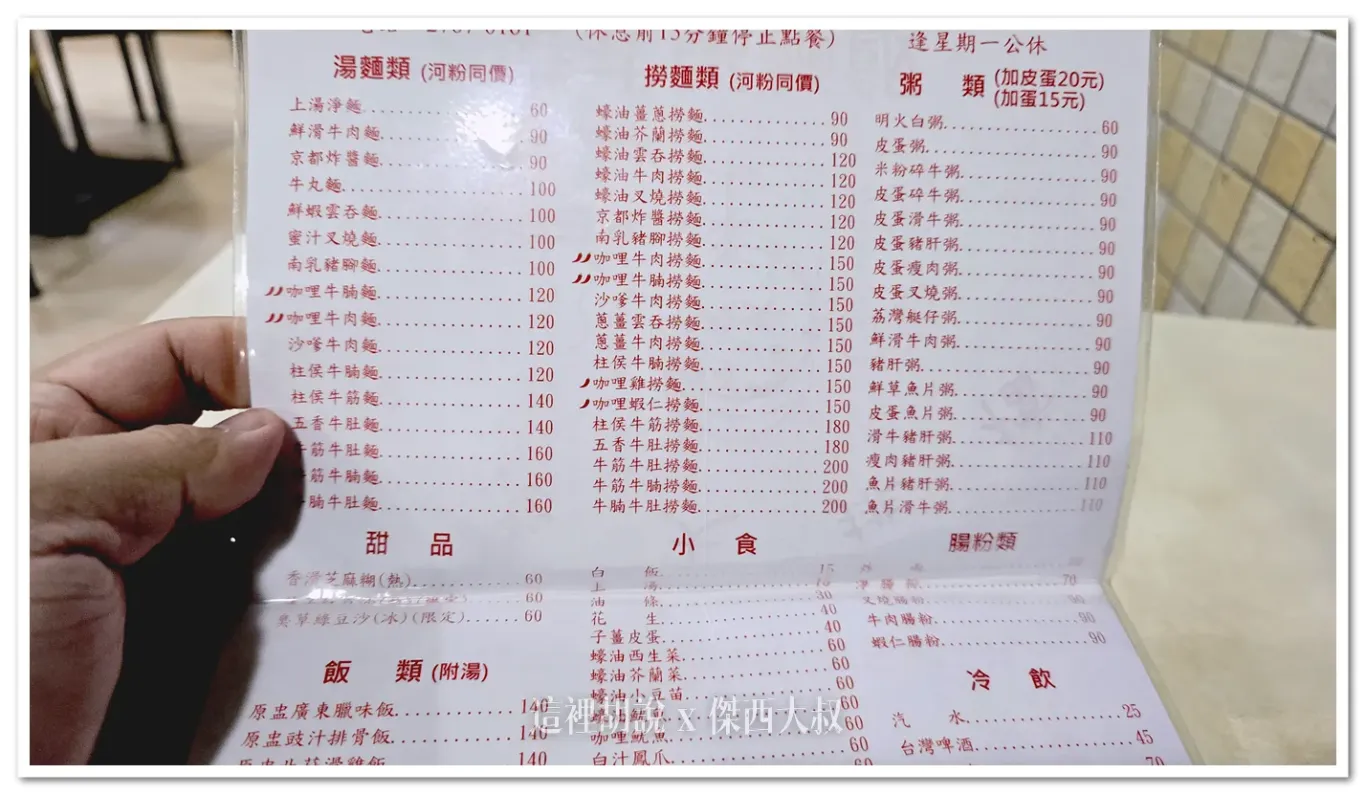 (休息前15分鐘停止點餐)
逢星期一公休
湯麵類 (河粉同價)
上湯淨麵 60
鮮滑牛肉麵 90
京都炸醬麵 90
牛丸麵 100
鮮蝦雲吞麵 100
蜜汁叉燒麵 100
南乳豬腳麵 100
咖哩牛腩麵 120
咖哩牛肉麵 120
沙嗲牛肉麵 120
柱侯牛腩麵 120
柱侯牛筋麵 140
五香牛肚麵 140
筋牛肚麵 160
筋牛腩麵 160
腩牛肚麵 160
撈麵類 (河粉同價)
蠔油薑蔥撈麵 90
蠔油芥蘭撈麵 90
蠔油雲吞撈麵 120
蠔油牛肉撈麵 120
蠔油叉燒撈麵 120
京都炸醬撈麵 120
南乳豬腳撈麵 120
咖哩牛肉撈麵 150
咖哩牛腩撈麵 150
沙嗲牛肉撈麵 150
蔥薑雲吞撈麵 150
蔥薑牛肉撈麵 150
柱侯牛腩撈麵 150
咖哩雞撈麵 150
咖哩蝦仁撈麵 150
柱侯牛筋撈麵 180
五香牛肚撈麵 180
牛筋牛肚撈麵 200
牛筋牛腩撈麵 200
牛腩牛肚撈麵 200
粥類 (加皮蛋20元)
(加蛋15元)
明火白粥 60
皮蛋粥 90
米粉碎牛粥 90
皮蛋碎牛粥 90
皮蛋滑牛粥 90
皮蛋豬肝粥 90
皮蛋瘦肉粥 90
皮蛋叉燒粥 90
荔灣艇仔粥 90
鮮滑牛肉粥 90
豬肝粥 90
鮮草魚片粥 90
皮蛋魚片粥 90
滑牛豬肝粥 110
瘦肉豬肝粥 110
魚片豬肝粥 110
魚片滑牛粥 110
甜品
香滑芝麻糊(熱) 60
60
臭草綠豆沙(冰)(限定) 60
飯類 (附湯)
原盅廣東臘味飯 140
原盅豉汁排骨飯 140
140
小食
白飯 15
上湯
油條 30
花生 40
子薑皮蛋 40
蠔油西生菜 60
蠔油芥蘭菜 60
蠔油小豆苗 60
60
咖哩魷魚 60
白汁鳳爪 60
腸粉類
70
叉燒腸粉 90
牛肉腸粉 90
蝦仁腸粉 90
冷飲
汽水 25
台灣啤酒 45
70
這裡胡說 x 傑西大叔